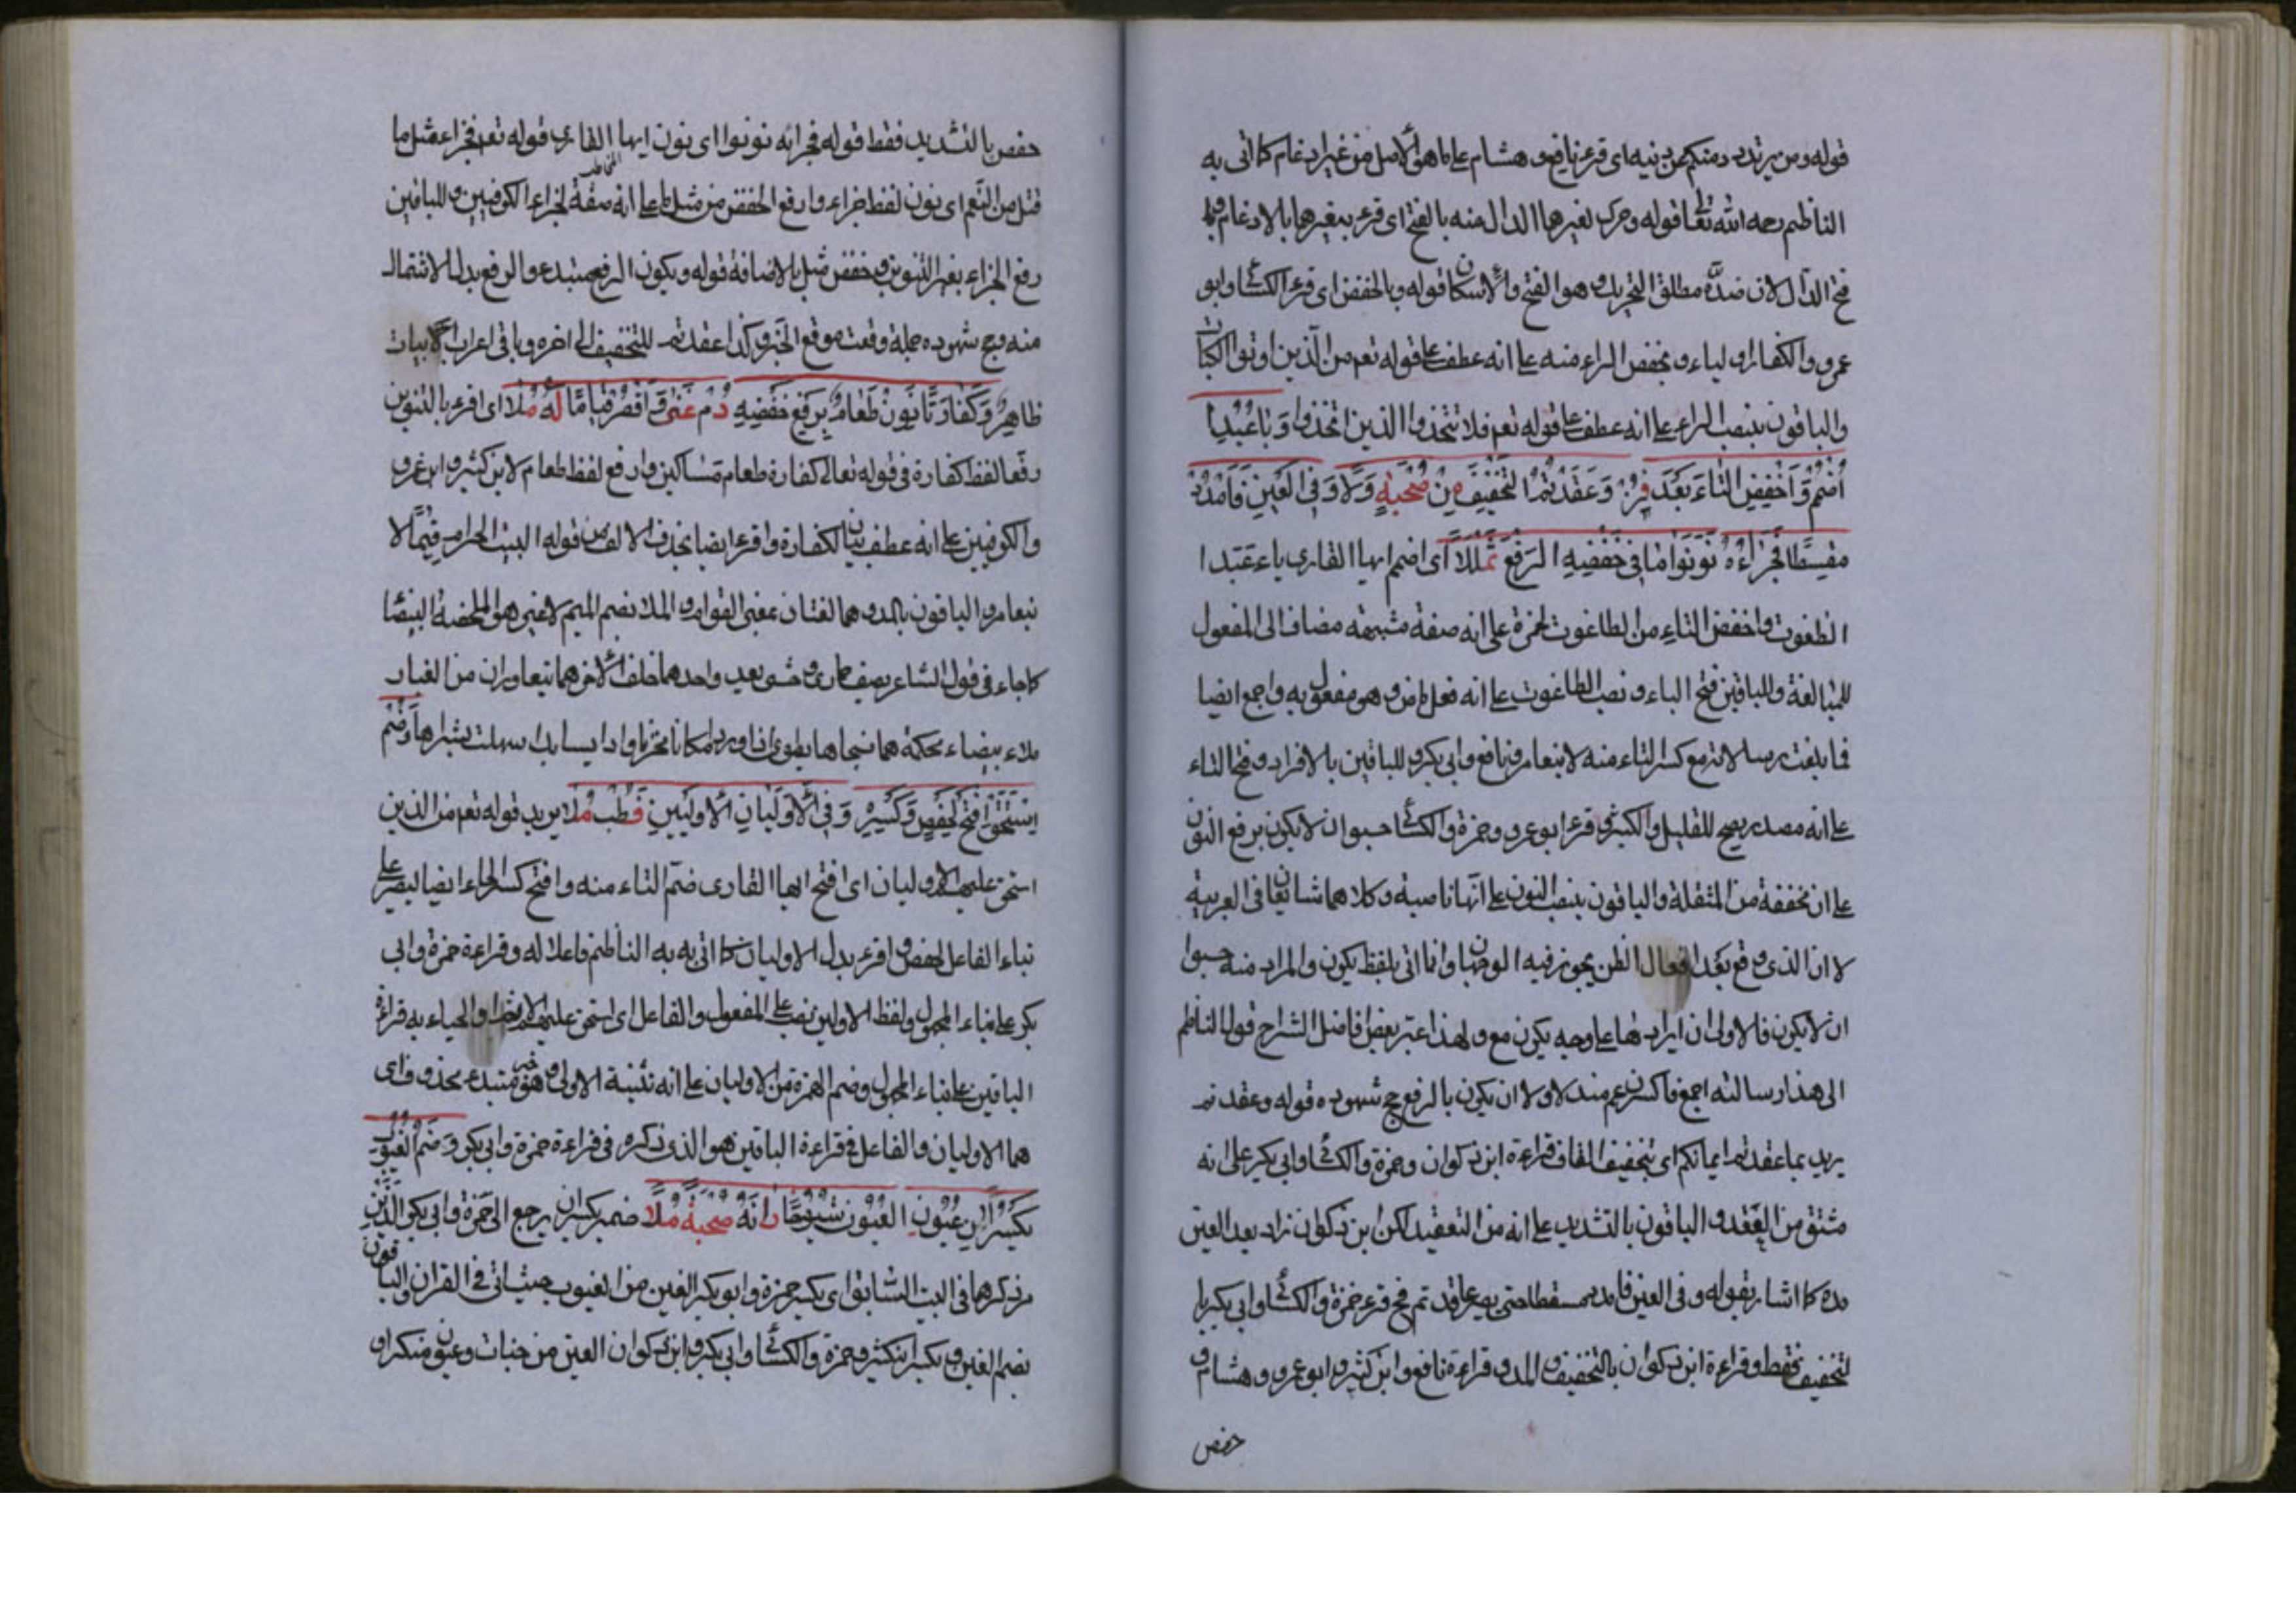 قوله ومن يرتدد منكم عن دينه اى قرء نافع وهشام على ما هو الاصل من غير ادغام كما اتى به
الناظم رحمه الله تعالى قوله وحرك لغيرهما الدال منه بالفتح اى قرء بغيرهما بالادغام
فتح الدال لان ضده مطلق التحريك وهو الفتح والاسكان قوله وبالخفض اى قرء الكسائى وابو
عمرو والكفار اولياء وبخفض الراء منه على انه عطف على قوله تعم من الذين اوتوا الكتاب
والباقون بنصب الراء على انه عطف على قوله تعم فلا تتخذوا الذين اتخذوا وَبَا عَبُدَا
اُضْمُمْ وَاَخْفِضِ التَّاءَ بَعْدَ فِزْ وَعَقَّدْتُمُ التَّخْفِيفُ مِنْ صُحْبَةٍ وَلَا وَفِى الْعَيْنِ فَامْدُدْ
مقسطا فجزاء نونوا ما فى خفضه الرفع ثملا اى اضمم ايها القارى باء عبد ا
الطغوت واخفض التاء من الطاغوت لحمزة على انه صفة مشبهه مضاف الى المفعول
للمبالغة وللباقين فتح الباء ونصب الطاغوت على انه فعل ماض وهو مفعول به واجمع ايضا
فما بلغت رسالاته مع كسر التاء منه لابنعامر ونافع وابى بكر وللباقين بالافراد وفتح التاء
على انه مصدر يصح للقليل والكثير وقرء ابو عمرو وحمزة والكسائى حسبوا ان لا يكون برفع النون
على ان مخففة من المثقلة والباقون بنصب النون على انها ناصبة وكلاهما شايعان فى العربية
لان الذى وقع بعد افعال الظن يجوز فيه الوجهان وانما اتى بلفظ يكون والمراد منه حسبوا
ان لا يكون فالاولى ان ايرادها على وجه يكون مع ولهذا اعتبر بعض فاضل الشراح قول الناظم
الى هذا رسالته اجمع فاكسر عم مندلا ولا ان يكون بالرفع حج شهوده قوله وعقد تم
يريد بما عقدتم ايمانكم اى بتخفيف القاف قراءة ابن ذكوان وحمزة والكسائى وابى بكر على انه
مشتق من العقد والباقون بالتشديد على انه من التعقيد لكن ابن ذكوان زاد بعد العين
مده كما اشار بقوله وفى العين فامدد مقسطا حتى يصير عاقدتم فح قرء حمزة والكسائى وابى بكر با
لتخفيف فقط وقراءة ابن ذكوان بالتخفيف والمد وقراءة نافع وابن كثير وابو عمرو وهشام و
حفص
حفص بالتشديد فقط قوله فجزاءه نونوا اى نون ايها القارى قوله تعم فجزاء مثل ما
قتل من النعم اى نون لفظ جزاء وارفع الخفض من مثل ما على انه صفة لجزاء الكوفيين وللباقين
رفع الجزاء بغير التنوين وخفض مثل بالاضافة قوله ويكون الرفع مبتدء والرفع بدل الاشتمال
منه وحج شهوده جملة وقعت موقع الخبر وكذا عقدتم للتخفيف الى اخره وباقى اعراب الابيات
ظاهر وَكَفَّارَةٌ نَوِّنْ طَعَامُ بِرَفْعِ خَفْضِهِ دُمْ غِنًى وَاقْصُرْ قِيَامًا لَهُ مُلَا اى اقرء بالتنوين
رفعا لفظ كفارة فى قوله تعالى كفارة طعام مساكين وارفع لفظ طعام لابن كثير وابى عمرو
والكوفيين على انه عطف بيان لكفارة واقرء ايضا بحذف الالف من قوله البيت الحرام قيما لا
بنعامر والباقون بالمد وهما لغتان بمعنى القوام والملا بضم الميم لا غير هو الملحفة البيضا
كما جاء فى قول الشاعر يصف حمارى وحشى بعيد واحدهما خلف الاخر هما يتعاوران من الغبار
ملاء بيضاء محكمة هما نسجاها وضُمَّ
اسْتُحِقَّ افْتَحْ لِحَفْصٍ وَكَسْرَهُ وَفِى الْاَوْلَيَانِ الْاَوَّلِينَ فَطِبْ صِلَا يريد قوله تعم من الذين
استحق عليهم الاوليان اى افتح ايها القارى ضم التاء منه وافتح كسر الحاء ايضا ليصير على
بناء الفاعل لحفص واقرء بدل الاوليان كما اتى به الناظم فاعلا له وقراءة حمزة وابى
بكر على بناء المجهول ولفظ الاولين نصب على المفعول والفاعل اى استحق عليهم
الباقين على بناء المجهول وضم الهمزة من الاوليان على انه تثنية الاولى وهو خبر مبتدء محذوف اى
هما الاوليان والفاعل فى قراءة الباقين هو الذى ذكره فى قراءة حمزة وابى بكر وَضَمَّ الْغُيُوبِ
يَكْسِرَانِ عُيُونِ الْعُيُونِ شُيُوخًا دَانَهُ صُحْبَةٌ مِلَا ضمير يكسران يرجع الى حمزة وابى بكر الذين
مر ذكرهما فى البيت السابق اى يكسر حمزة وابو بكر الغين من الغيوب حيث اتى فى القران والباقون
بضم الغين ويكسر ابنكثير وحمزة والكسائى وابى بكر وابن ذكوان العين من جنات وعيون منكرا و